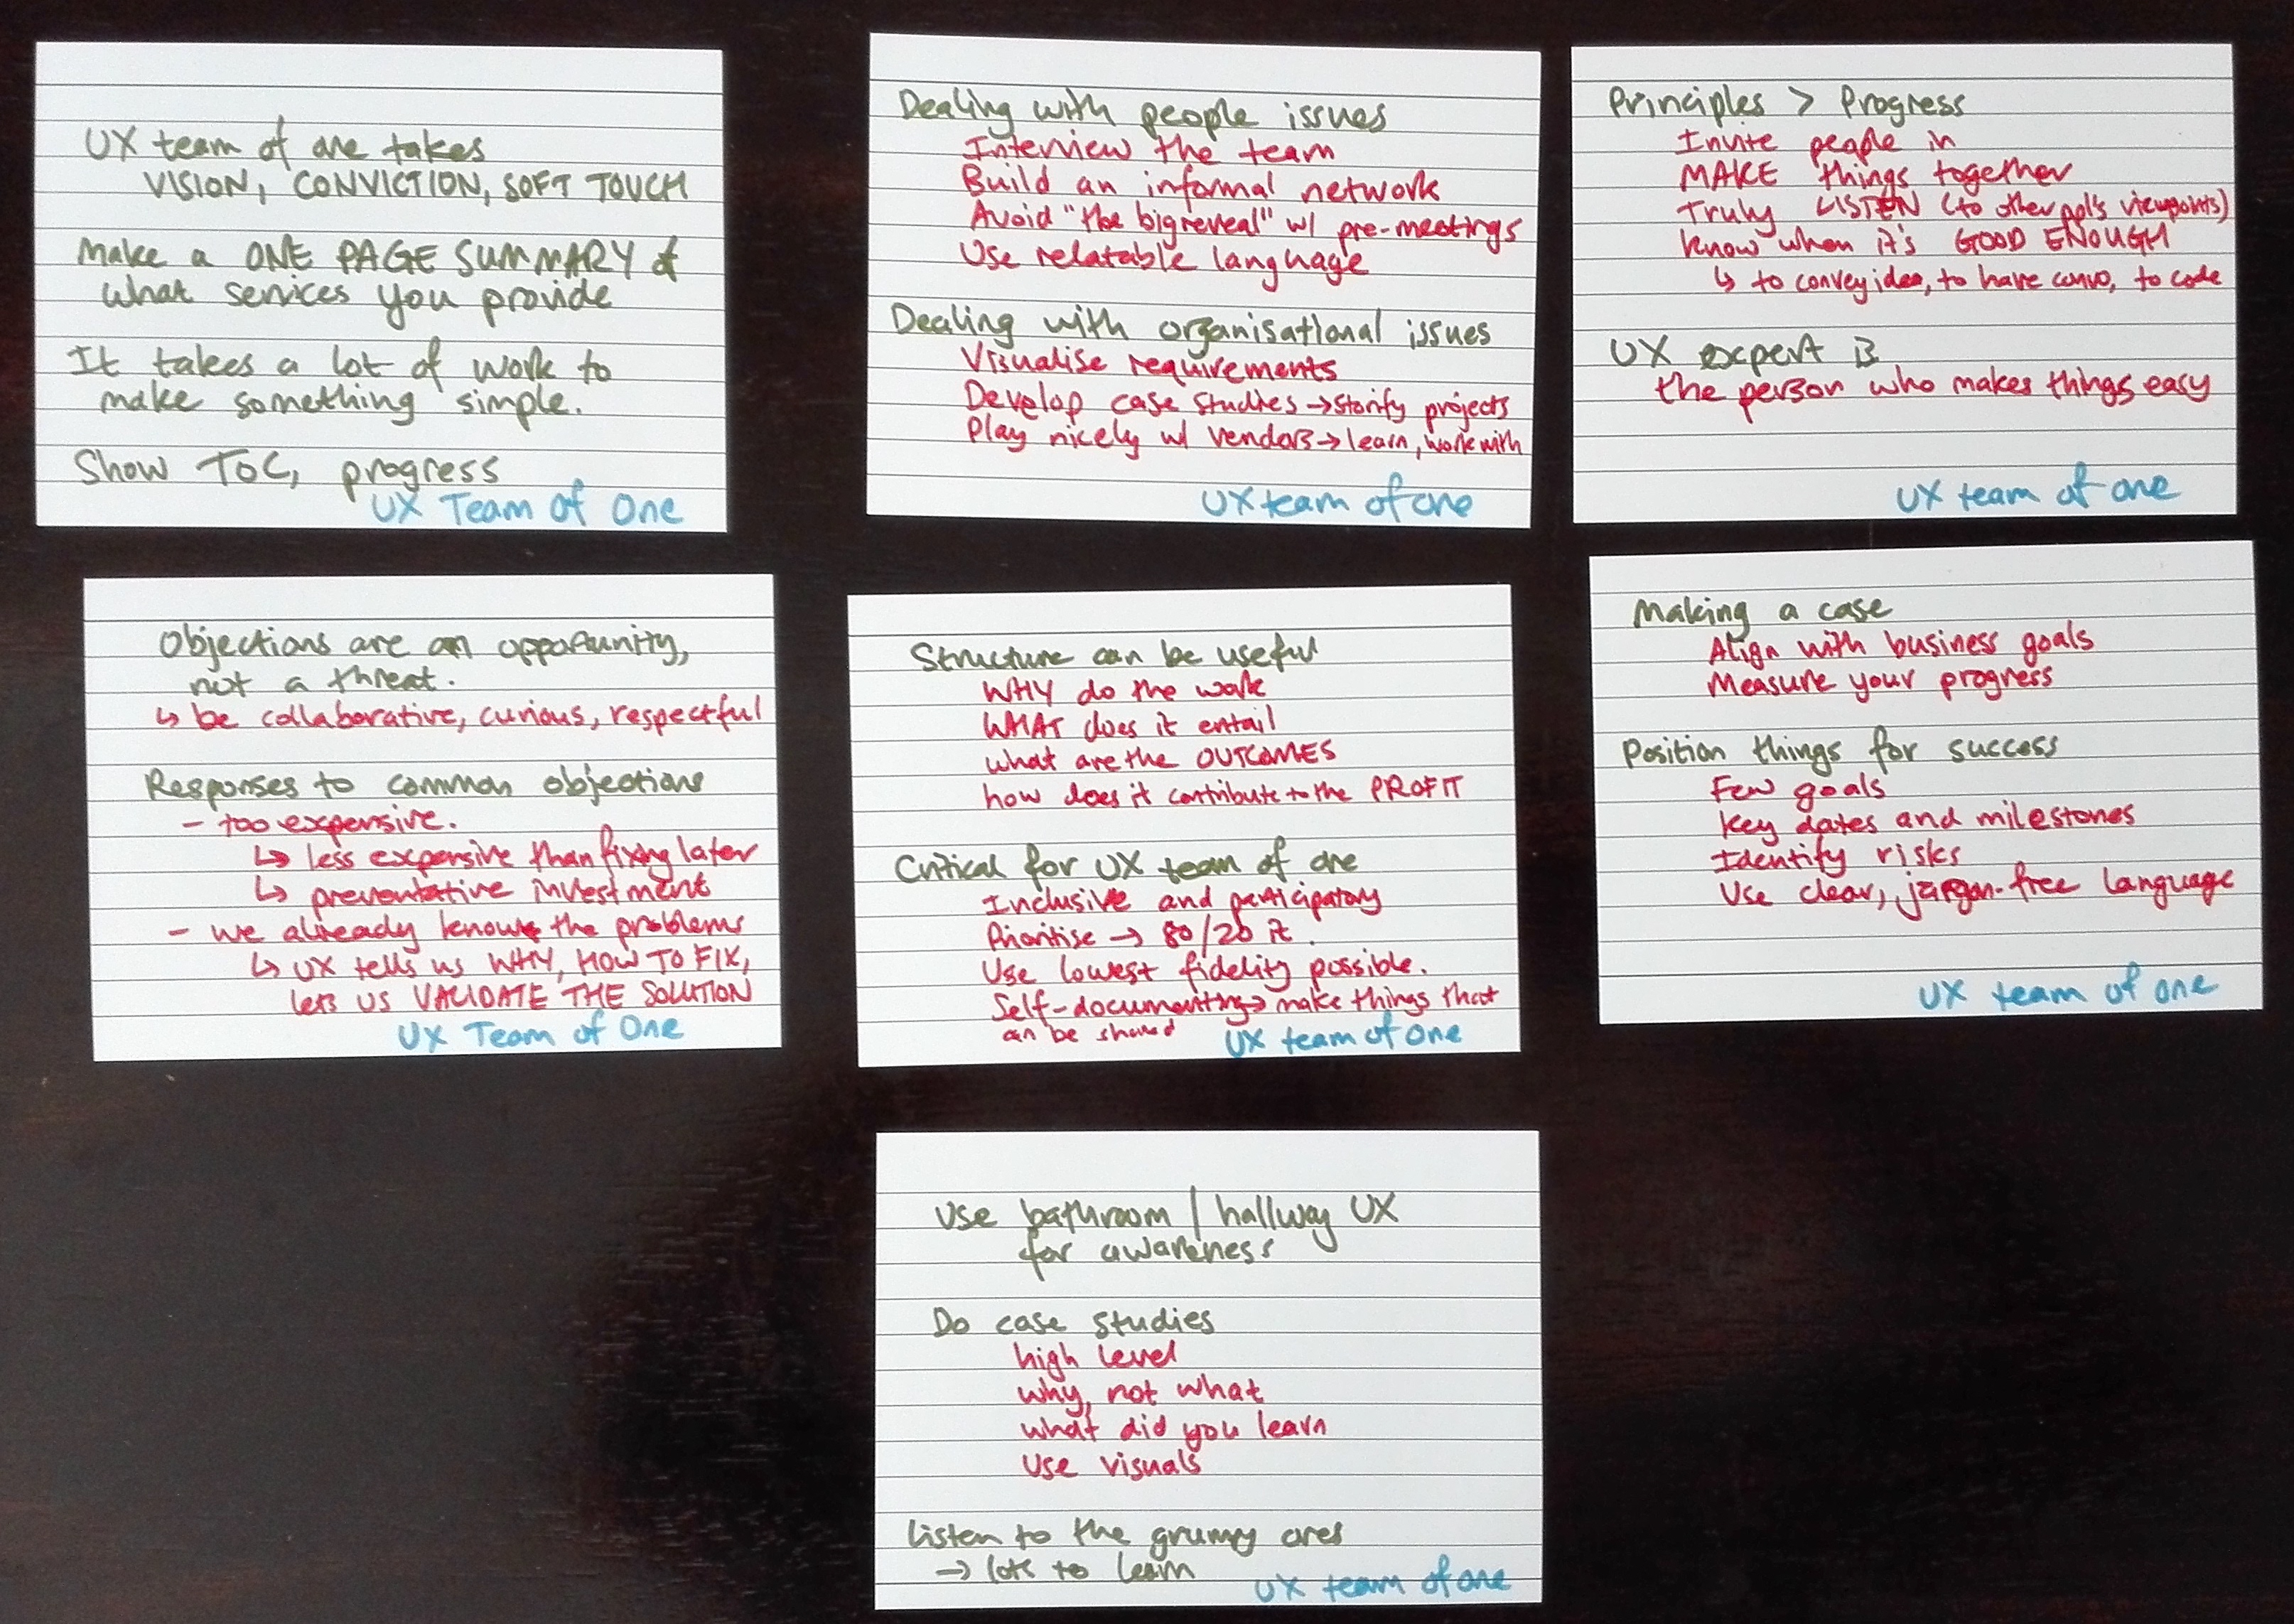 UX team of one takes
VISION, CONVICTION, SOFT TOUCH
Make a ONE PAGE SUMMARY of
what services you provide
It takes a lot of work to
make something simple.
Show ToC, progress
UX Team of One
Dealing with people issues
Interview the team
Build an informal network
Avoid "the big reveal" w/ pre-meetings
Use relatable language
Dealing with organisational issues
Visualise requirements
Develop case studies → storify projects
Play nicely w/ vendors → learn, work with
UX team of one
Principles > Progress
Invite people in
MAKE things together
Truly LISTEN (to other ppl's viewpoints)
know when it's GOOD ENOUGH
↳ to convey idea, to have convo, to code
UX expert is
the person who makes things easy
UX team of one
Objections are an opportunity,
not a threat.
↳ be collaborative, curious, respectful
Responses to common objections
- too expensive.
↳ less expensive than fixing later
↳ preventative investment
- we already know the problems
↳ UX tells us WHY, HOW TO FIX,
lets US VALIDATE THE SOLUTION
UX Team of One
Structure can be useful
WHY do the work
WHAT does it entail
what are the OUTCOMES
how does it contribute to the PROFIT
Critical for UX team of one
Inclusive and participatory
Prioritise → 80/20 it.
Use lowest fidelity possible.
Self-documenting → make things that
can be shared
UX team of one
Making a case
Align with business goals
Measure your progress
Position things for success
Few goals
Key dates and milestones
Identify risks
Use clear, jargon-free language
UX team of one
Use bathroom / hallway UX
for awareness
Do case studies
high level
why, not what
what did you learn
Use visuals
Listen to the grumpy ones
→ lots to learn
UX team of one